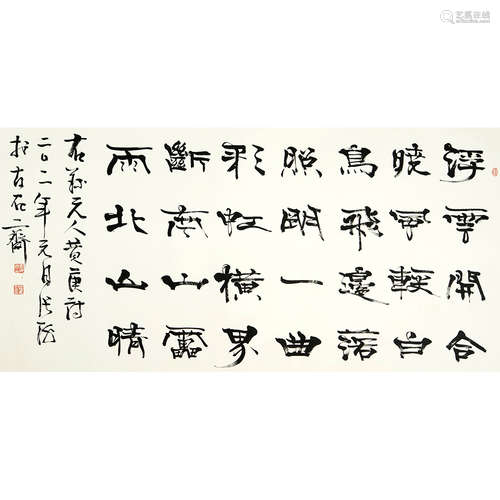 浮雲開合
曉風輕白
鳥飛邊落
照明一曲
彩虹橫界
斷南山雷
雨北山晴
右錄元人黄庚詩
年元月
古石齋
艺狐在线